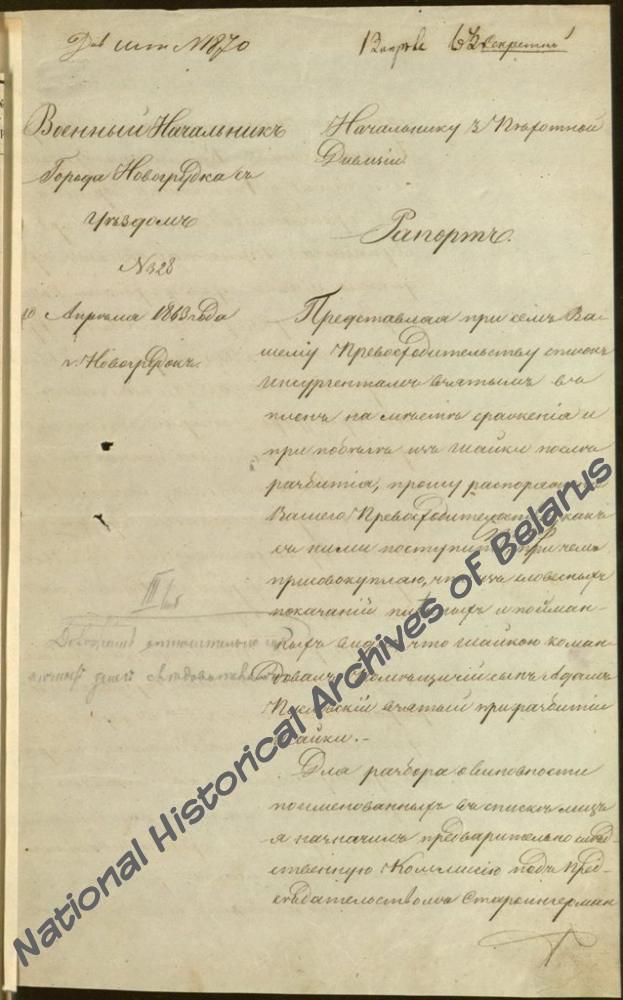 № 1870
Секретно
Военный Начальникъ
Города Новогрудка съ
уѣздомъ
№ 328
10 Апрѣля 1863 года
г. Новогрудокъ.
Начальнику 3 Пѣхотной
Дивизіи
Рапортъ.
Представляя при семъ Ва-
шему Превосходительству списокъ
инсургентамъ взятымъ въ
плѣнъ на мѣстѣ сраженія и
при побѣгѣ изъ шайки послѣ
разбитія, прошу распоряженія
Вашего Превосходительства какъ
съ ними поступить, при чемъ
присовокупляю, что изъ словесныхъ
показаній плѣнныхъ и пойман-
ныхъ видно что шайкою коман-
довалъ Помѣщичій сынъ Адамъ
взятый при разбитіи
шайки. -
Для разбора о виновности
поименованныхъ въ спискѣ лицъ
я назначилъ предварительно слѣд-
ственную Коммисію подъ Пред-
сѣдательствомъ Староингерман
III
National Historical Archives of Belarus